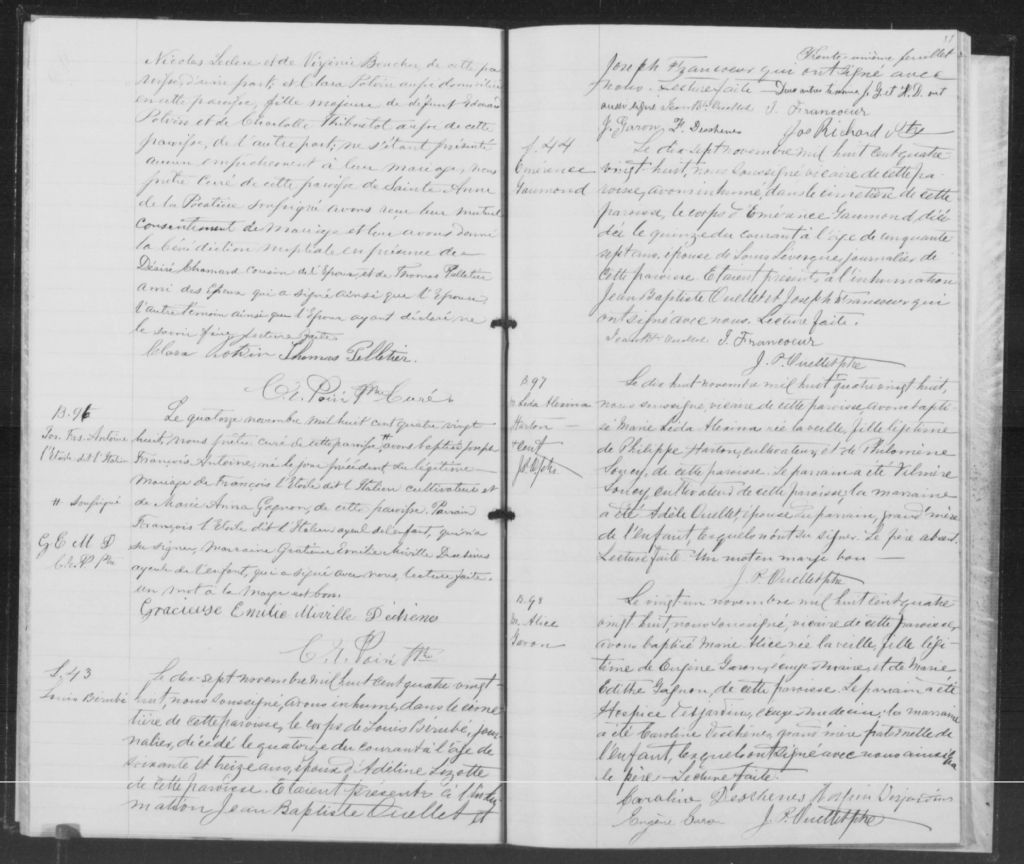 Nicolas Leclerc et de Virginie Boucher de cette pa
roisse d'une part, et Clara Potvin aussi domiciliée
en cette paroisse, fille majeure de défunt
Potvin et de Charlotte Thiboutot aussi de cette
paroisse, de l'autre part; ne s'étant présenté
aucun empêchement à leur mariage, nous
prêtre curé de cette paroisse de Sainte Anne
de la Pocatière soussigné avons reçu leur mutuel
consentement de mariage et leur avons donné
la bénédiction nuptiale en présence de
Désiré Chamard cousin de l'Epoux, et de Thomas Pelletier
ami des Epoux qui a signé ainsi que l'Epouse
l'autre témoin ainsi que l'Epoux ayant déclaré ne
le savoir faire, lecture faite.
Clara Potvin Thomas Pelletier.
Ptre Curé
B. 96
Jos. Frs. Antoine
l'Etoile dit l'Italien
# soussigné
G E M D
Ptre
Le quatorze novembre mil huit cent quatre vingt
huit, nous prêtre curé de cette paroisse, # avons baptisé Joseph
François Antoine, né le jour précédent du légitime
mariage de François l'Etoile dit l'Italien cultivateur et
de Marie Anna Gagnon, de cette paroisse. Parrain
François l'Etoile dit l'Italien ayeul de l'enfant, qui n'a
su signer, Marraine Gratieuse Emilie Miville Deschênes
ayeule de l'enfant, qui a signé avec nous, lecture faite.
un mot à la marge est bon.
Gracieuse Emilie Miville Dechene
Ptre
S. 43
Louis Bérubé
Le dix-sept novembre mil huit cent quatre vingt-
huit, nous soussigné, avons inhumé, dans le cime
tière de cette paroisse, le corps de Louis Bérubé, jour
nalier, décédé le quatorze du courant à l'âge de
soixante et treize ans, époux d'Adéline Lizotte
de cette paroisse. Etaient présents à l'inhu
mation Jean Baptiste Ouellet et
31
Trente-unième feuillet
Joseph Francoeur qui ont signé avec
nous. Lecture faite. Deux autres témoins J. G et H. D. ont
aussi signé Jean Bte Ouellet J. Francoeur
J. Garon, H. Deschenes Jos Richard Ptre
S. 44
Emérance
Gaumond
Le dix sept novembre mil huit cent quatre
vingt-huit, nous soussigné vicaire de cette pa-
roisse, avons inhumé, dans le cimetière de cette
paroisse, le corps d'Emérance Gaumond, décé
dée le quinze du courant à l'âge de cinquante
sept ans, épouse de Louis Levergne, journalier, de
cette paroisse. Etaient présents à l'inhumation
Jean Baptiste Ouellet et Joseph Francoeur qui
ont signé avec nous. Lecture faite.
Jean Bte Ouellet J. Francoeur
J. P. Ouellet ptre
B. 97
M. Leda Alexina
Harton
Le dix huit novembre mil huit quatre vingt huit,
nous soussigné, vicaire de cette paroisse, avons bapti
sé Marie Léda Alexina née la veille, fille légitime
de Philippe Harton, cultivateur, et de Philomène
Soucy, de cette paroisse. Le parrain a été
Soucy, cultivateur de cette paroisse; la marraine
a été Adèle Ouellet, épouse du parrain, grand'mère
de l'enfant, lesquels n'ont su signer. Le père absent.
Lecture faite. Un mot en marge bon
J. P. Ouellet ptre
B. 98
M. Alice
Garon
Le vingt un novembre mil huit cent quatre
vingt-huit, nous soussigné, vicaire de cette paroisse,
avons baptisé Marie Alice née la veille, fille légi-
time de Eugène Garon, et de Marie
Edithe Gagnon, de cette paroisse. Le parrain a été
Hospice Desjardins, médecin; la marraine
a été Caroline Deschênes, grand'mère paternelle de
l'enfant, lesquels ont signé avec nous ainsi que
le père. Lecture faite.
Caroline Deschenes Hospice Desjardins
Eugène Garon J. P. Ouellet ptre